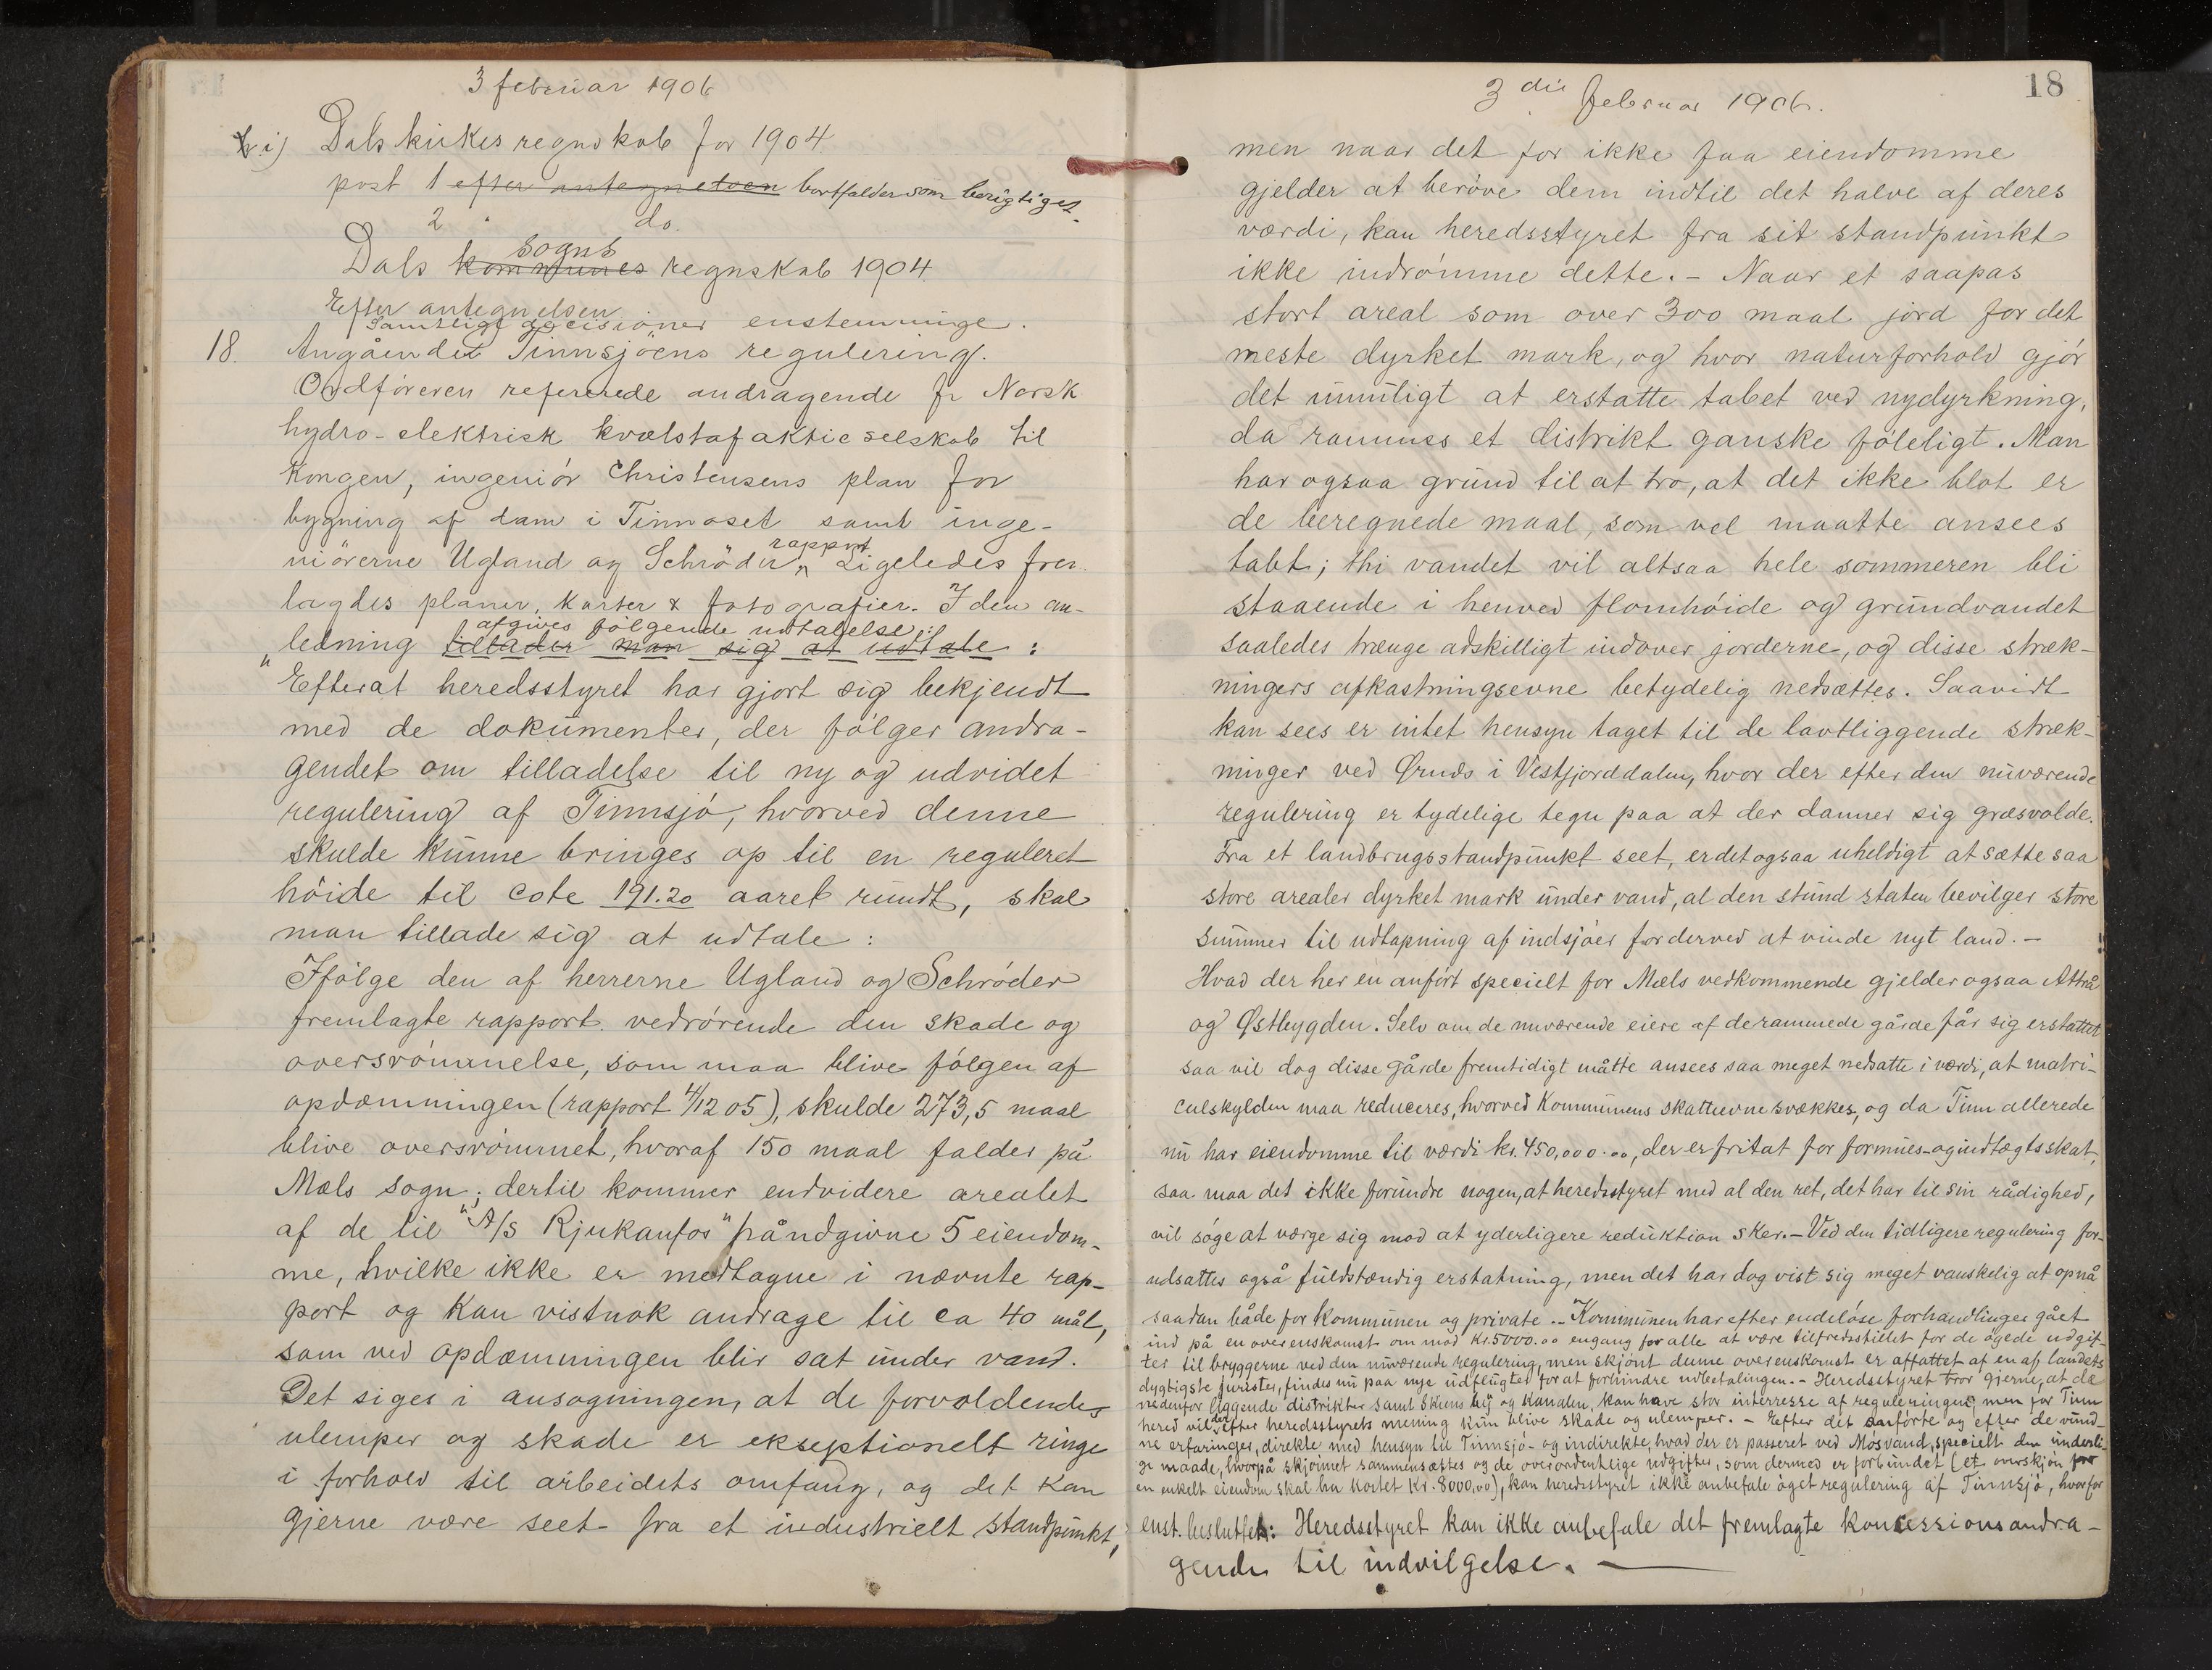 3 februar 1906
i) Dals kirkes regnskab for 1904
post 1 efter antegnelsen bortfalder som berigtiget.
2 " do.
sogns
Dals kommunes regnskab 1904.
Efter antegnelsen
Samtlige decisioner enstemmige.
18. Angående Tinnsjöens regulering.
Ordföreren refererede andragende fr Norsk
hydro-elektrisk kvælstofaktieselskab til
Kongen, ingeniör Christensens plan for
bygning af dam i Tinnoset samt inge-
niörerne Ugland og Schröders rapport Ligeledes frem
lagdes planer, karter & fotografier. I den an-
afgives følgende udtalelse:
ledning tillader man sig at udtale :
"Efterat heredsstyret har gjort sig bekjendt
med de dokumenter, der fölger andra-
gendet om tilladelse til ny og udvidet
regulering af Tinnsjö, hvorved denne
skulde kunne bringes op til en reguleret
höide til cote 191.20 aaret rundt, skal
man tillade sig at udtale :
Ifölge den af herrerne Ugland og Schröder
fremlagte rapport vedrörende den skade og
oversvömmelse, som maa blive fölgen af
opdæmningen (rapport 4/12 05), skulde 273,5 maal
blive oversvömmet, hvoraf 150 maal falder på
Mæls sogn; dertil kommer endvidere arealet
af de til "A/S Rjukanfos" håndgivne 5 eiendom-
me, hvilke ikke er medtagne i nævnte rap-
port og kan vistnok andrage til ca 40 mål,
som ved opdæmningen blir sat under vand.
Det siges i ansøgningen, at de forvoldende
ulemper og skade er ekseptionelt ringe
i forhold til arbeidets omfang, og det kan
gjerne være seet fra et industrielt standpunkt,
3 die februar 1906.
18
men naar det for ikke faa eiendomme
gjelder at beröve dem indtil det halve af deres
værdi, kan heredsstyret fra sit standpunkt
ikke indrömme dette. - Naar et saapas
stort areal som over 300 maal jord for det
meste dyrket mark, og hvor naturforhold gjör
det umuligt at erstatte tabet ved nydyrkning,
da rammes et distrikt ganske föleligt. Man
har ogsaa grund til at tro, at det ikke blot er
de beregnede maal, som vel maatte ansees
tabt; thi vandet vil altsaa hele sommeren bli
staaende i henved flomhöide og grundvandet
saaledes trænge adskilligt indover jorderne, og disse stræk-
ningers afkastningsevne betydelig nedsættes. Saavidt
kan sees er intet hensyn taget til de lavtliggende stræk-
ninger ved Ørnæs i Vestfjorddalen, hvor der efter den nuværende
regulering er tydelige tegn paa at der danner sig græsvolde.
Fra et landbrugsstandpunkt seet, er det ogsaa uheldigt at sætte saa
store arealer dyrket mark under vand, al den stund staten bevilger store
summer til udtapning af indsjöer for derved at vinde nyt land. -
Hvad der her en anfört specielt for Mæls vedkommende gjelder ogsaa Attrå
og Østbygden. Selv om de nuværende eiere af de rammede gårde får sig erstattet
saa vil dog disse gårde fremtidigt måtte ansees saa meget nedsatte i værdi, at matri-
culskylden maa reduceres, hvorved Kommunens skatteevne svækkes, og da Tinn allerede
nu har eiendomme til værdi kr. 450,000.00, der er fritat for formues- og indtægtsskat,
saa maa det ikke forundre nogen, at heredsstyret med al den ret, det har til sin rådighed,
vil söge at værge sig mod at yderligere reduktion sker. - Ved den tidligere regulering for-
udsattes også fuldstændig erstatning, men det har dog vist sig meget vanskelig at opnå
saadan både for kommunen og private. - Kommunen har efter endelöse forhandlinger gået
ind på en overenskomst om mod kr. 5000.00 engang for alle at være tilfredsstillet for de øgede udgif-
ter til bryggerne ved den nuværende regulering, men skjönt denne overenskomst er affattet af en af landets
dygtigste jurister, findes nu paa nye udflugter for at forhindre udbetalingen. - Heredsstyret tror gjerne, at de
nedenfor liggende distrikter samt Skiens by og Kanalen, kan have stor interresse af reguleringen, men for Tinn
hered vil der efter heredsstyrets mening kun blive skade og ulemper. - Efter det anförte og efter de vund-
ne erfaringer, direkte med hensyn til Tinnsjö- og indirekte, hvad der er passeret ved Mösvand, specielt den underli-
ge maade, hvorpå skjönnet sammensættes og de overordentlige udgifter, som dermed er forbundet (et overskjön for
en enkelt eiendom skal ha kostet kr. 8000,00), kan heredsstyret ikke anbefale öget regulering af Tinnsjö, hvorfor
enst. besluttet: Heredsstyret kan ikke anbefale det fremlagte koncessionsandra-
gende til indvilgelse. —